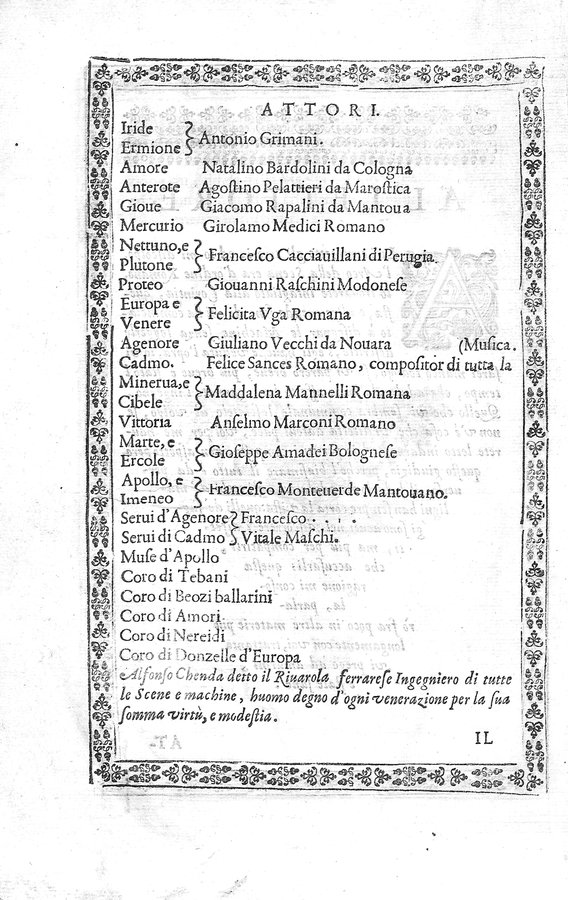 ATTORI.
Iride
Ermione } Antonio Grimani.
Amore Natalino Bardolini da Cologna
Anterote Agostino Pelattieri da Marostica
Gioue Giacomo Rapalini da Mantoua
Mercurio Girolamo Medici Romano
Nettuno,e
Plutone } Francesco Cacciauillani di Perugia.
Proteo Giouanni Raschini Modonese
Europa e
Venere } Felicita Vga Romana
Agenore Giuliano Vecchi da Nouara (Musica.
Cadmo. Felice Sances Romano, compositor di tutta la
Minerua,e
Cibele } Maddalena Mannelli Romana
Vittoria Anselmo Marconi Romano
Marte, e
Ercole } Gioseppe Amadei Bolognese
Apollo, e
Imeneo } Francesco Monteuerde Mantouano.
Serui d'Agenore } Francesco . . . .
Serui di Cadmo } Vitale Maschi.
Muse d'Apollo
Coro di Tebani
Coro di Beozi ballarini
Coro di Amori
Coro di Nereidi
Coro di Donzelle d'Europa
Alfonso Chenda detto il Riuarola ferrarese Ingegniero di tutte
le Scene e machine, huomo degno d'ogni veneratione per la sua
somma virtù, e modestia.
IL